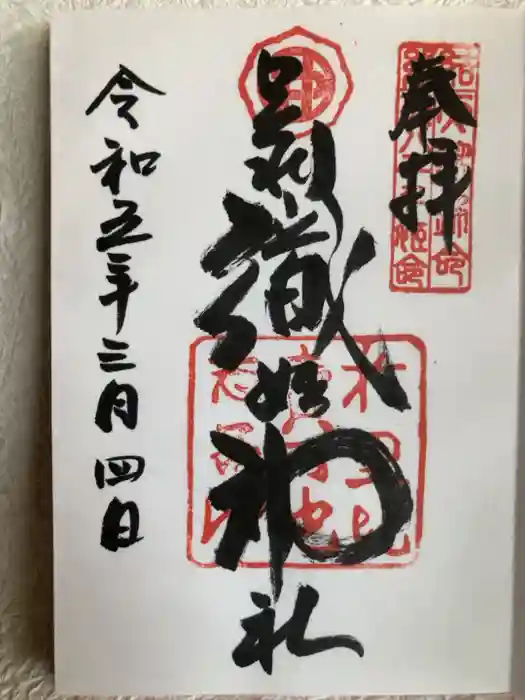 奉拝
足利織姫神社
令和五年三月四日